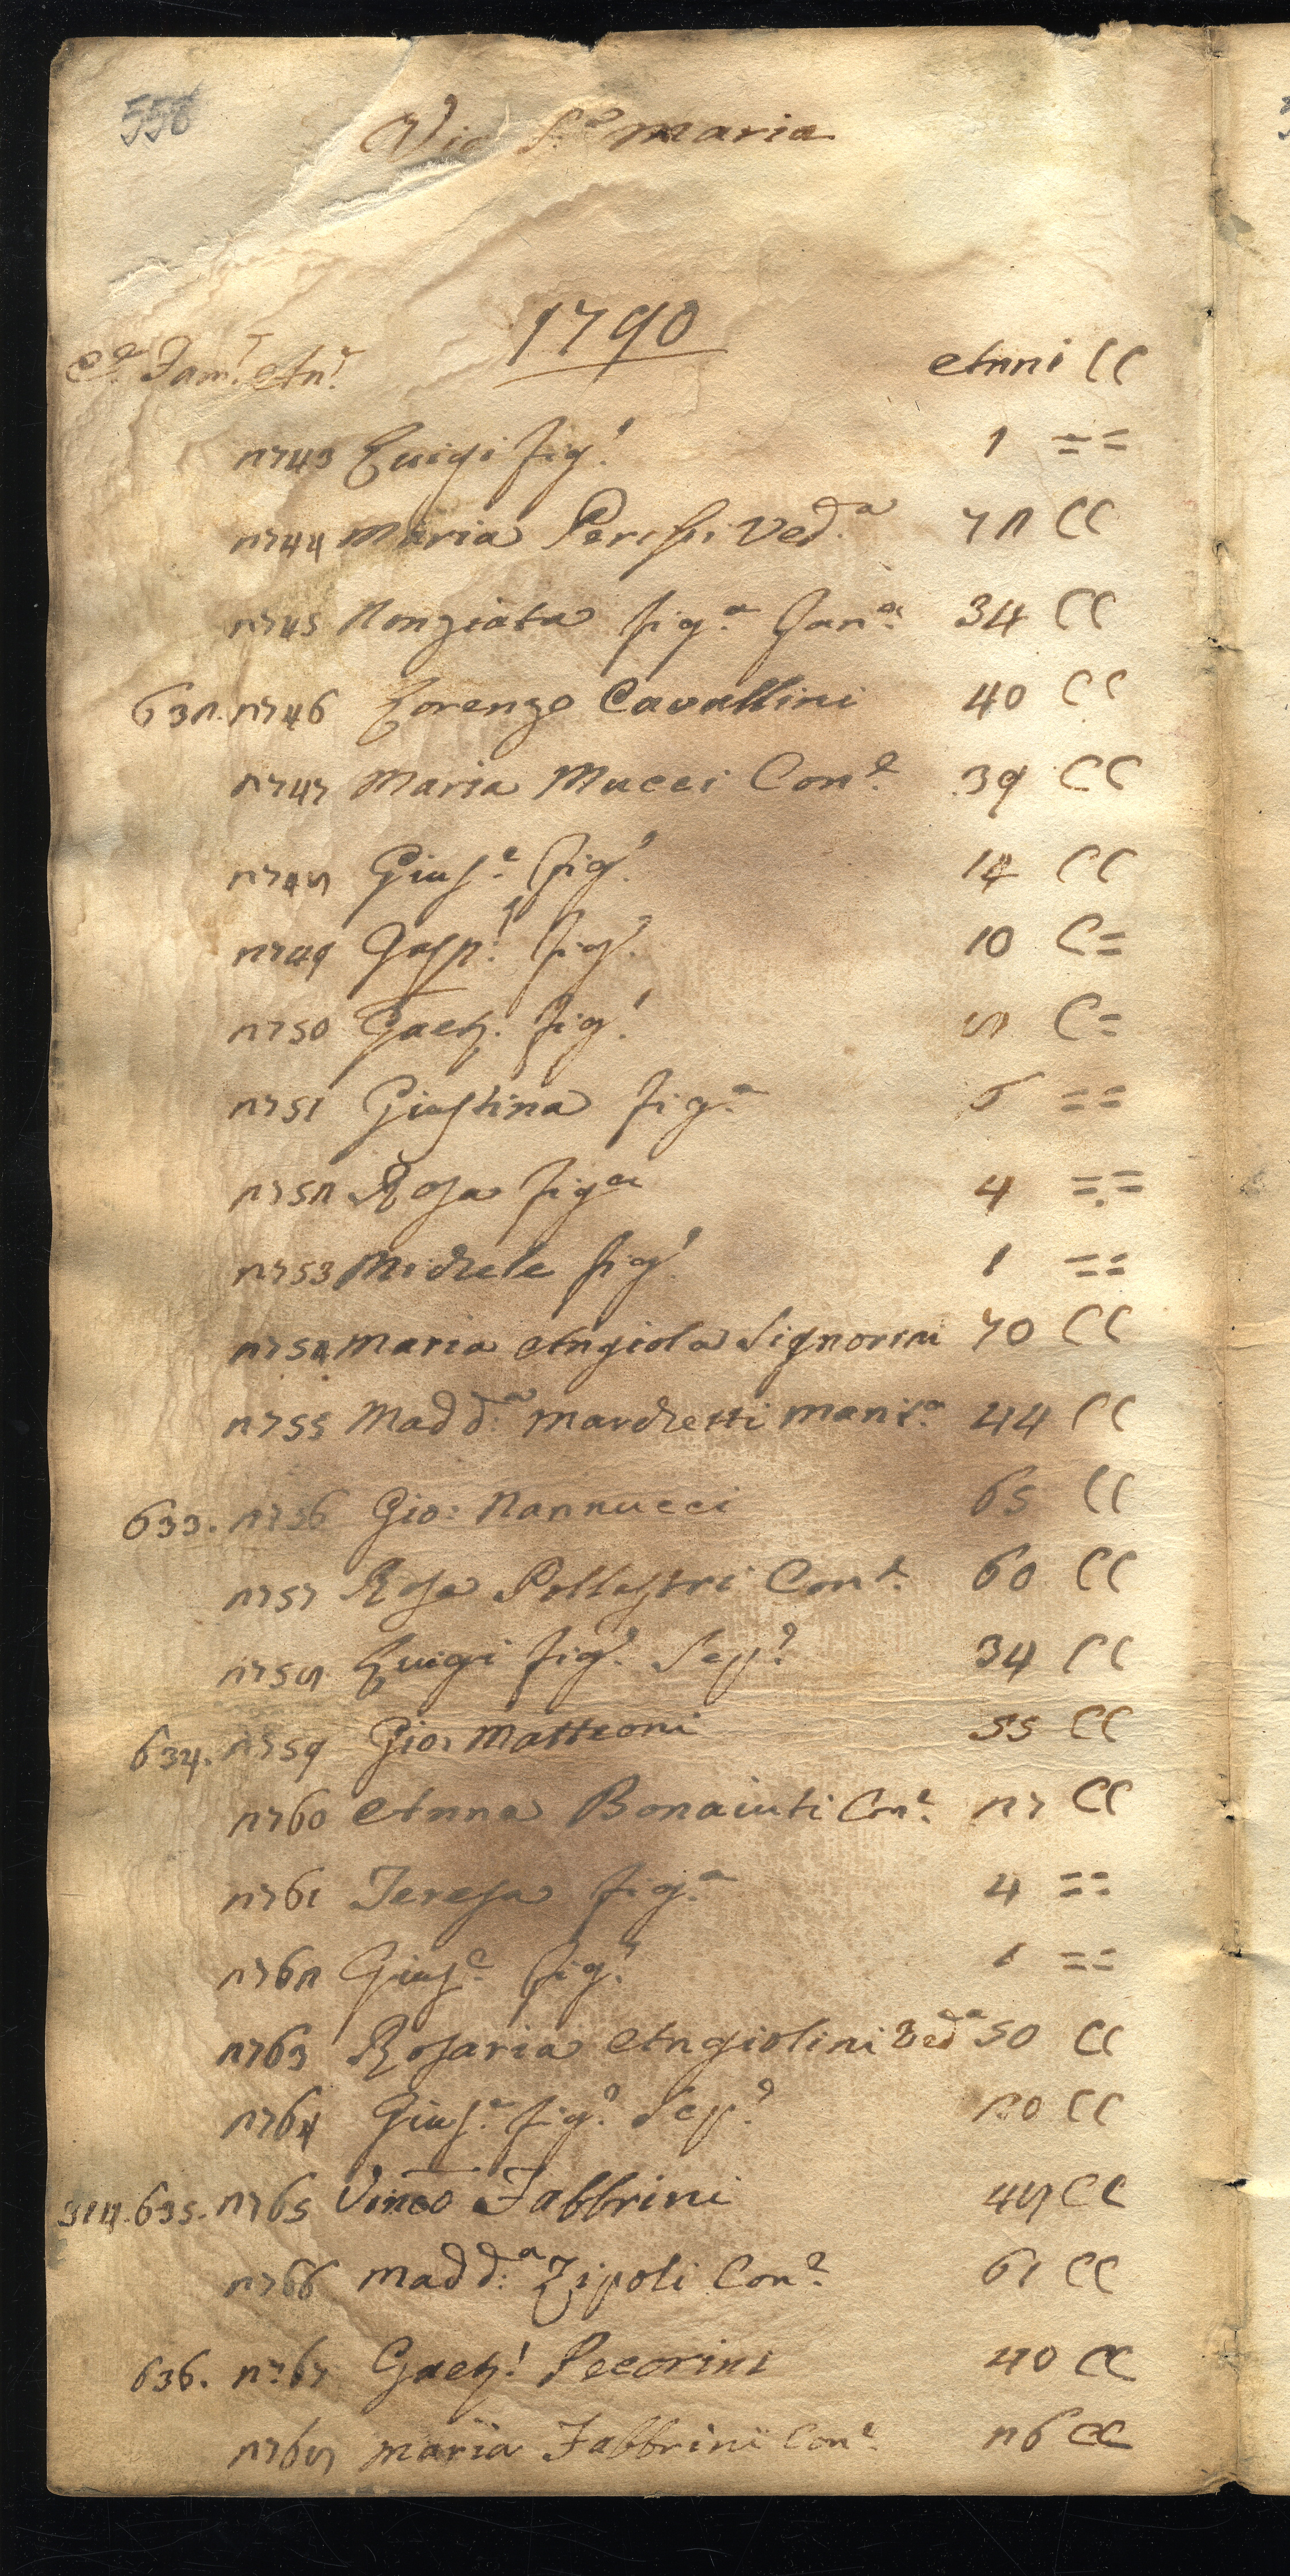 558
Via S.ª Maria
1790
C.ª Fam.ᵉ An.ᵉ Anni CC
2743 Luigi fig.º 1 ==
2744 Maria Ved.ª 72 CC
2745 Nonziata fig.ª Fan.ª 34 CC
632. 2746 Lorenzo Cavallini 40 CC
2747 Maria Mucci Con.ᵉ 39 CC
2748 Gius.ᵉ fig.º 14 CC
2749 Gasp.º fig.º 10 C=
2750 Gaet.º fig.º 8 C=
2751 Giustina fig.ª 6 ==
2752 Rosa fig.ª 4 ==
2753 Michele fig.º 1 ==
2754 Maria Angiola Signorini 70 CC
2755 Madd.ª Marchetti 44 CC
633. 2756 Gio: Nannucci 65 CC
2757 Rosa Pollastri Con.ᵉ 60 CC
2758 Luigi fig.º Sep.º 34 CC
634. 2759 Gio: Matteoni 55 CC
2760 Anna Bonaiuti Con.ᵉ 27 CC
2761 Teresa fig.ª 4 ==
2762 Gius.ᵉ fig.º 1 ==
2763 Rosaria Angiolini Ved.ª 50 CC
2764 Gius.ᵉ fig.º Sep.º 20 CC
635. 2765 Vinco Fabbrini 48 CC
2766 Madd.ª Zipoli Con.ᵉ 61 CC
636. 2767 Gaet.º Pecorini 40 CC
2768 Maria Fabbrini Con.ᵉ 26 CC